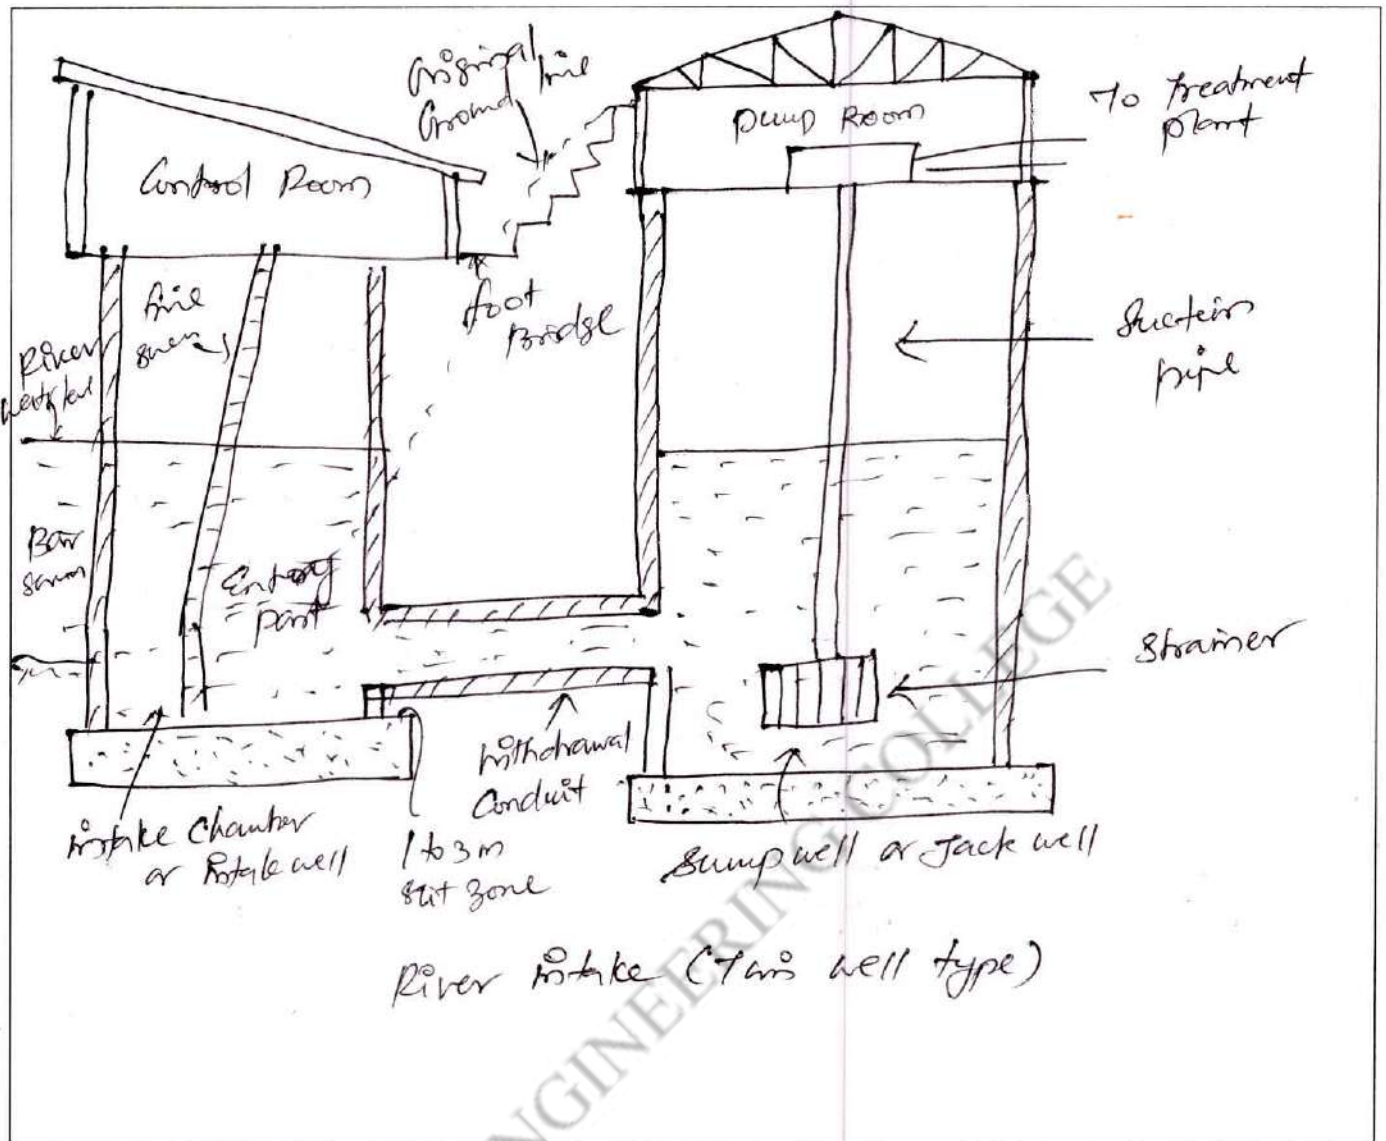 Original
Ground line
Pump Room
To treatment
plant
Control Room
fine
screen
foot
Bridge
River
water level
Suction
pipe
Bar
screen
Entry
port
Strainer
withdrawal
Conduit
intake Chamber
or intake well
1 to 3 m
silt zone
Sump well or Jack well
River intake (Twin well type)
NGINEERING COLLEGE